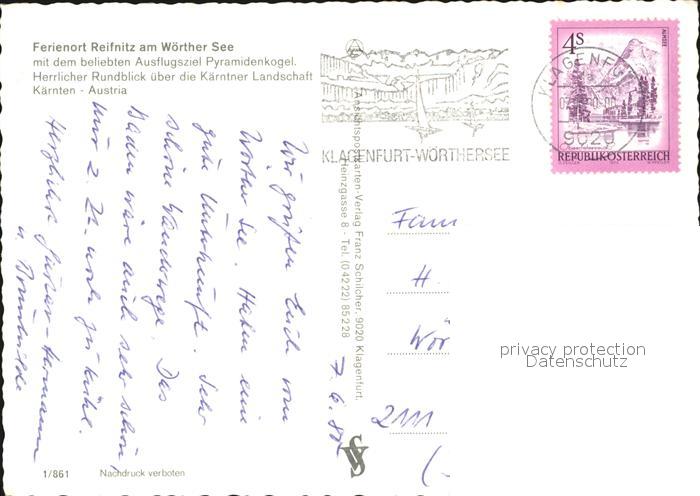 Ferienort Reifnitz am Wörther See
mit dem beliebten Ausflugsziel Pyramidenkogel.
Herrlicher Rundblick über die Kärntner Landschaft
Kärnten - Austria
KLAGENFURT-WÖRTHERSEE
KLAGENFURT
9020
4S
ALMSEE
REPUBLIK ÖSTERREICH
Wir grüßen Euch vom
Wörther See. Haben eine
gute Unterkunft. Sehr
schöne Wanderwege. Das
Baden wäre auch sehr schön,
nur z. Zt. noch zu kühl.
Herzlichst
u.
7. 6. 80
Ansichtspostkarten-Verlag Franz Schilcher, 9020 Klagenfurt,
Heinzgasse 8 - Tel. (04222) 85228
Fam
H.
Wör
2111
(-
privacy protection
Datenschutz
1/861
Nachdruck verboten